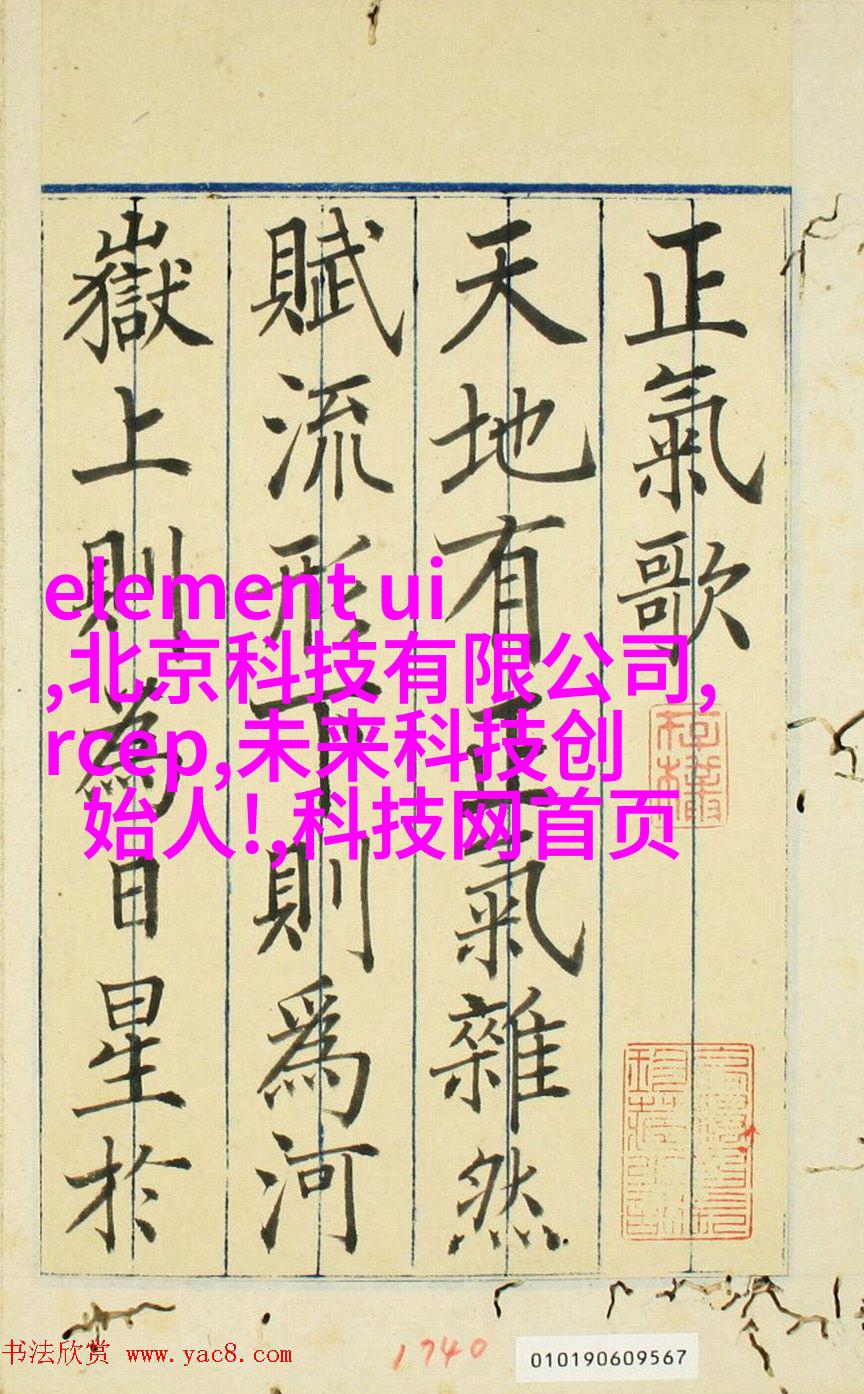 正氣歌
天地有正氣雜然
賦流形下則爲河
嶽上則為日星於
element ui
,北京科技有限公司,
rcep,未来科技创
始人!,科技网首页
书法欣赏 www.yac8.com
1740
010190609567